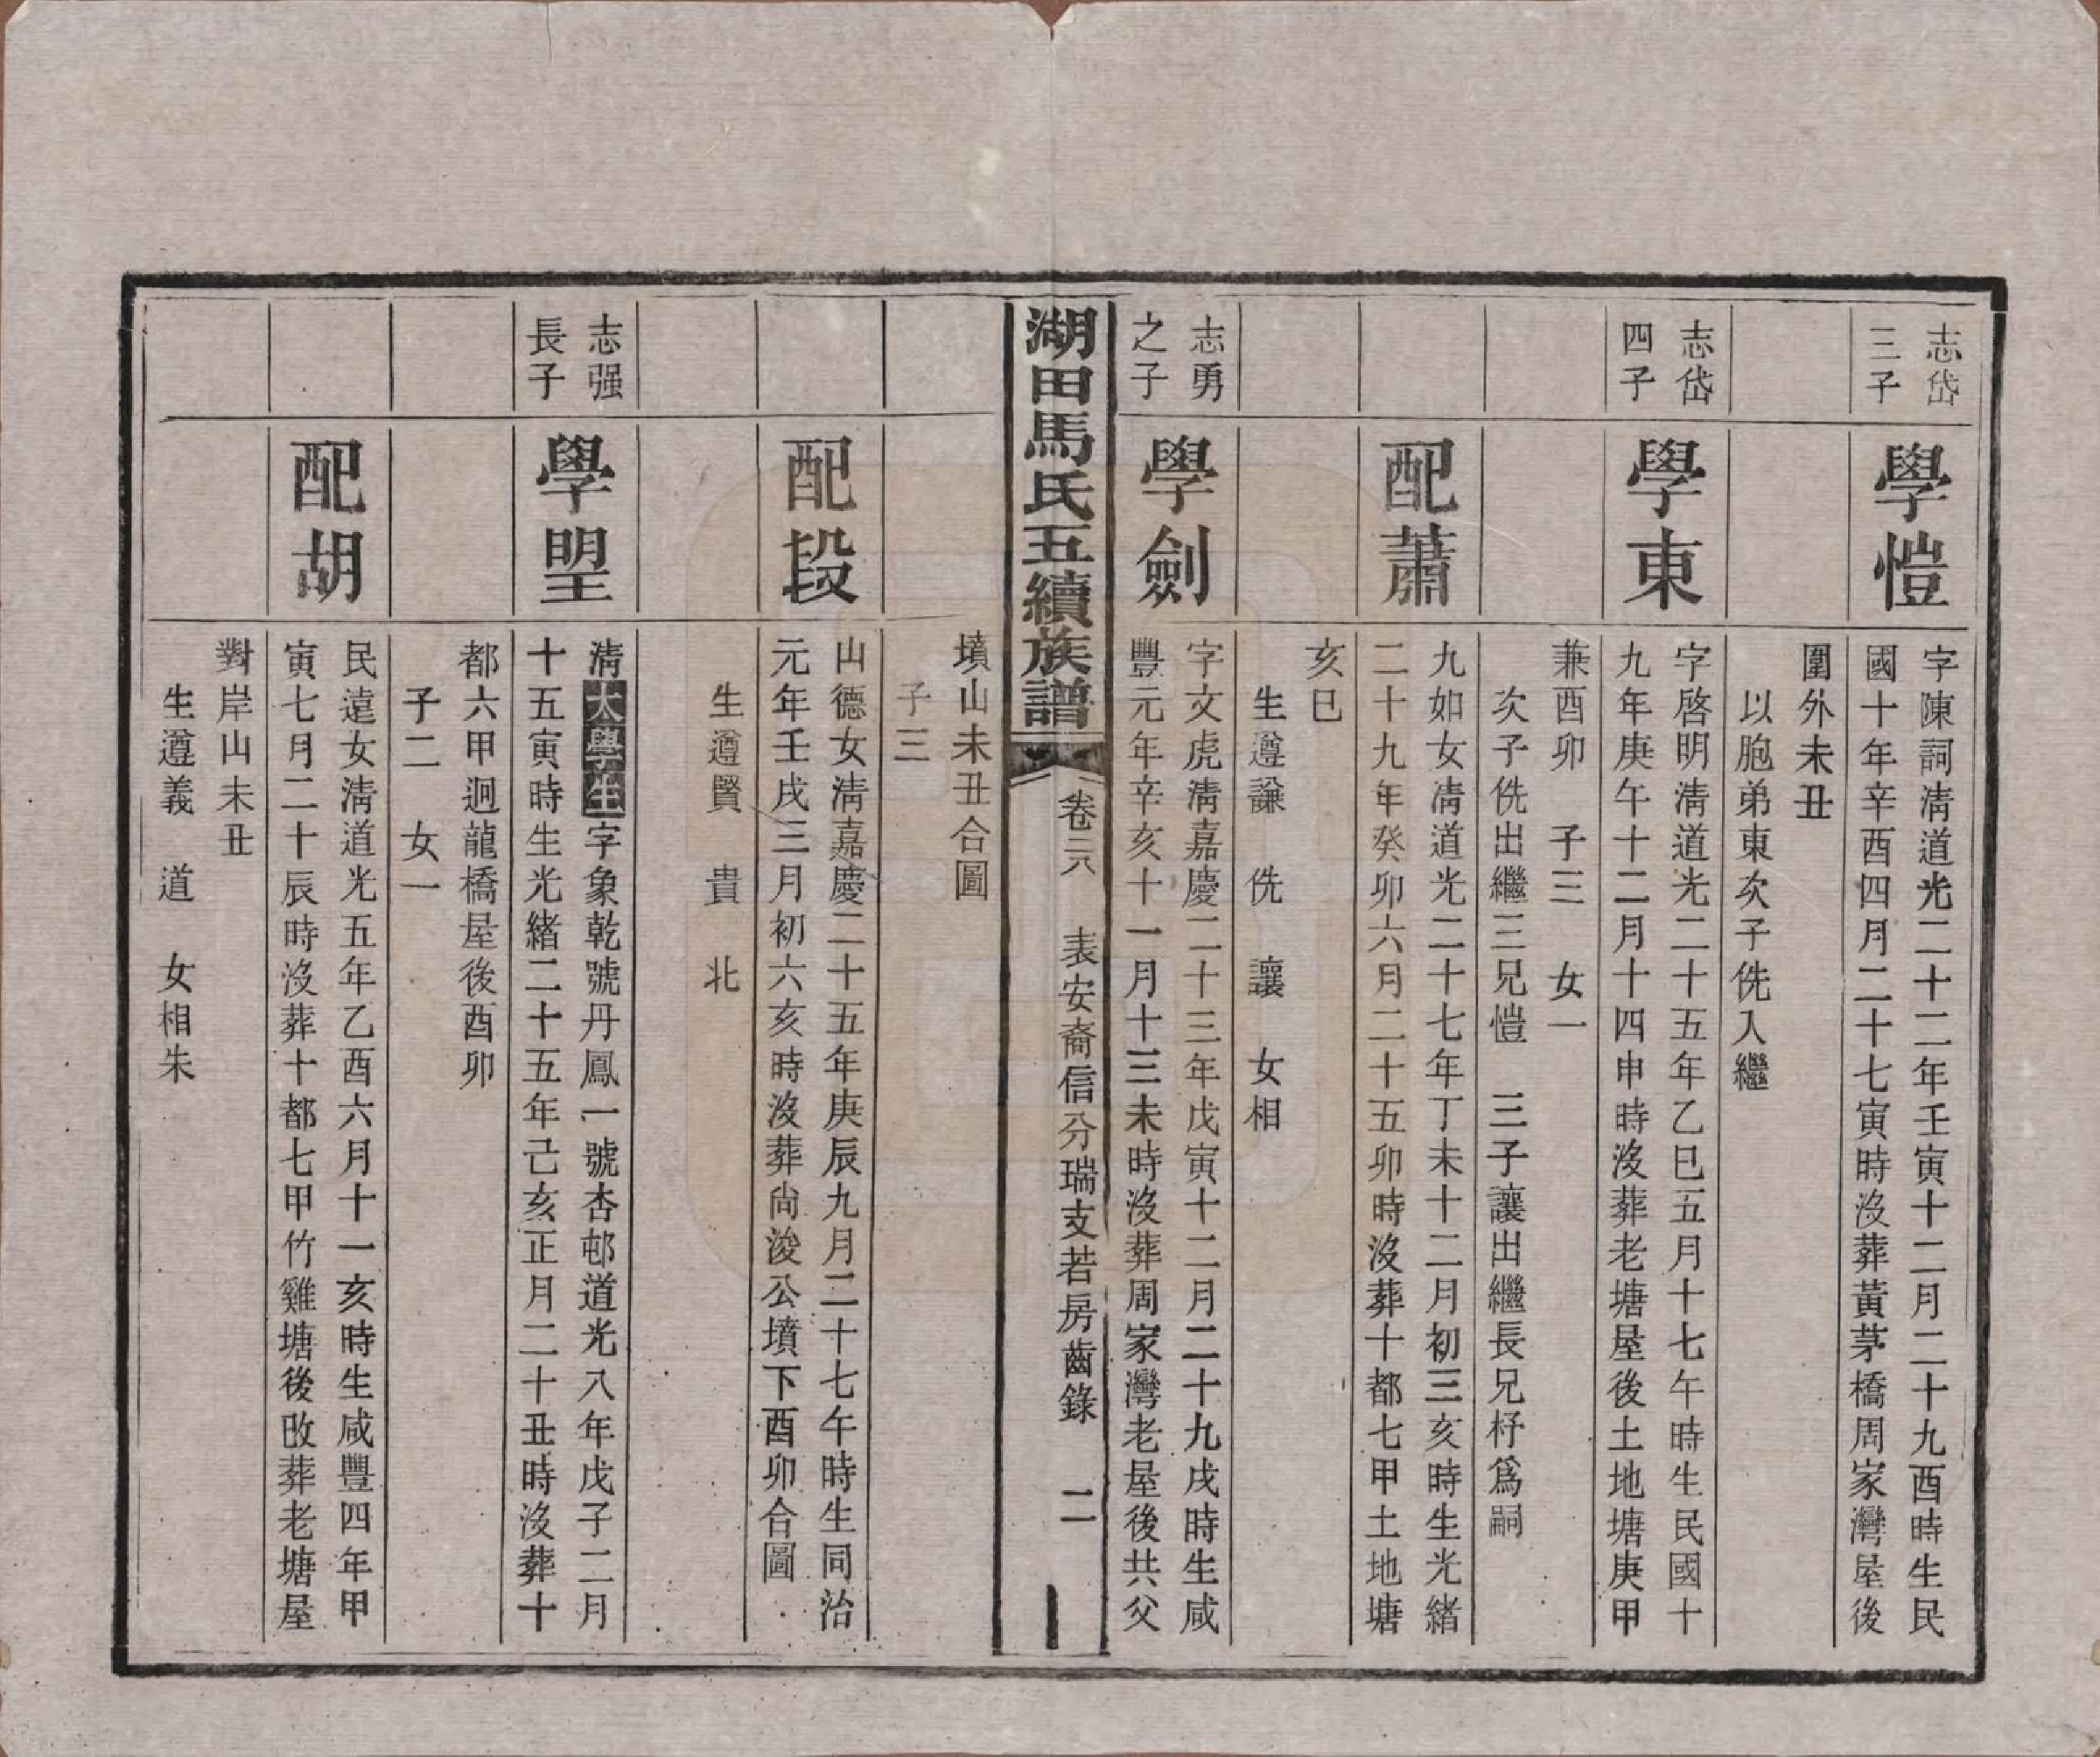 志岱
三子
學愷
字陳詞淸道光二十二年壬寅十二月二十九酉時生民
國十年辛酉四月二十七寅時沒葬黃茅橋周家灣屋後
圍外未丑
以胞弟東次子侁入繼
志岱
四子
學東
字啓明淸道光二十五年乙巳五月十七午時生民國十
九年庚午十二月十四申時沒葬老塘屋後土地塘庚甲
兼酉卯　子三　女一
次子侁出繼三兄愷　三子讓出繼長兄杼爲嗣
配蕭
九如女淸道光二十七年丁未十二月初三亥時生光緒
二十九年癸卯六月二十五卯時沒葬十都七甲土地塘
亥巳
生遵謙　侁　讓　女相
志勇
之子
學劍
字文虎淸嘉慶二十三年戊寅十二月二十九戌時生咸
豐元年辛亥十一月十三未時沒葬周家灣老屋後共父
湖田馬氏五續族譜
卷二八　表安裔信分瑞支若房齒錄　二
墳山未丑合圖
子三
配段
山德女淸嘉慶二十五年庚辰九月二十七午時生同治
元年壬戌三月初六亥時沒葬尙浚公墳下酉卯合圖
生遵賢　貴　北
志强
長子
學朢
淸太學生字象乾號丹鳳一號杏邨道光八年戊子二月
十五寅時生光緒二十五年己亥正月二十丑時沒葬十
都六甲迥龍橋屋後酉卯
子二　女一
配胡
民遠女淸道光五年乙酉六月十一亥時生咸豐四年甲
寅七月二十辰時沒葬十都七甲竹雞塘後改葬老塘屋
對岸山未丑
生遵義　道　女相朱